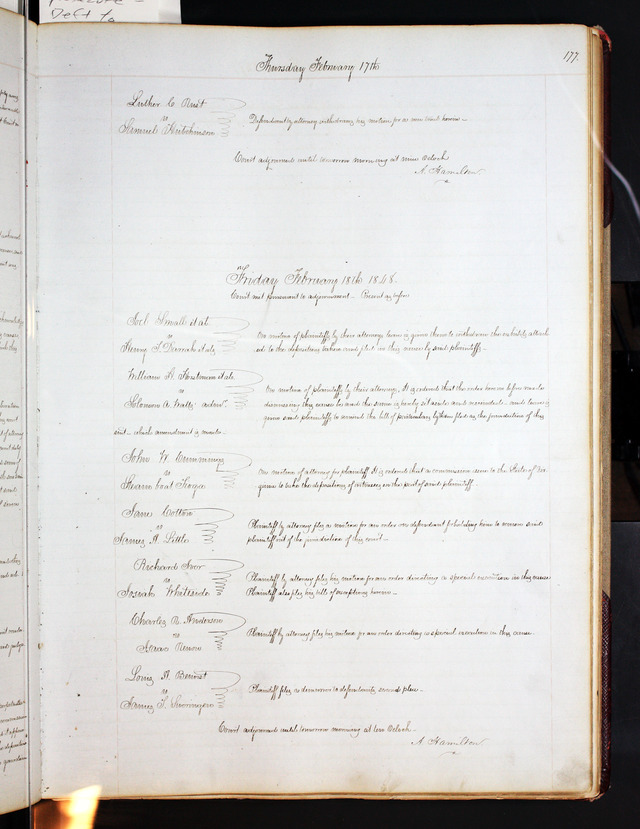 Deft to
177.
Thursday February 17th
Luther C.
vs
Samuel Hutchinson
Defendant by attorney withdraws his motion for herein—
Court adjourned until tomorrow morning at nine Oclock
A. Hamilton.
Friday February 18th 1848.
Court met pursuant to adjournment— Present as before
Joel Small et al
vs
Henry T. et al
On motion of plaintiffs by their attorney leave is given them to withdraw the exhibits attach
ed to the depositions taken and filed in this cause by said plaintiffs.—
William A. et al
vs
Solomon A. admr.
On motion of plaintiffs by their attorney, It is ordered that the order heretofore made
dismissing this cause be and the same is hereby set aside and rescinded— and leave is
given said plaintiffs to amend the bill of by them filed as the jurisdiction of this
suit— which amendment is made—
John W. Cummings
vs
Steam boat
On motion of attorney for plaintiff It is ordered that a commission issue to the State of
to take the depositions of witnesses on the part of said plaintiff.—
Jane Cotton
vs
James H. Little
Plaintiff by attorney files a motion for an order on defendant forbidding him to remove said
plaintiff out of the jurisdiction of this court.—
Richard
vs
Josiah Whiteside
Plaintiff by attorney files his motion for an order directing a special execution in this cause
Plaintiff also files his bill of exceptions herein—
Charles R. Anderson
vs
Plaintiff by attorney files his motion for an order directing a special execution in this cause.
Louis A. Benoist
vs
James S.
Plaintiff files a demurrer to defendants second plea—
Court adjourned until tomorrow morning at ten Oclock—
A. Hamilton.